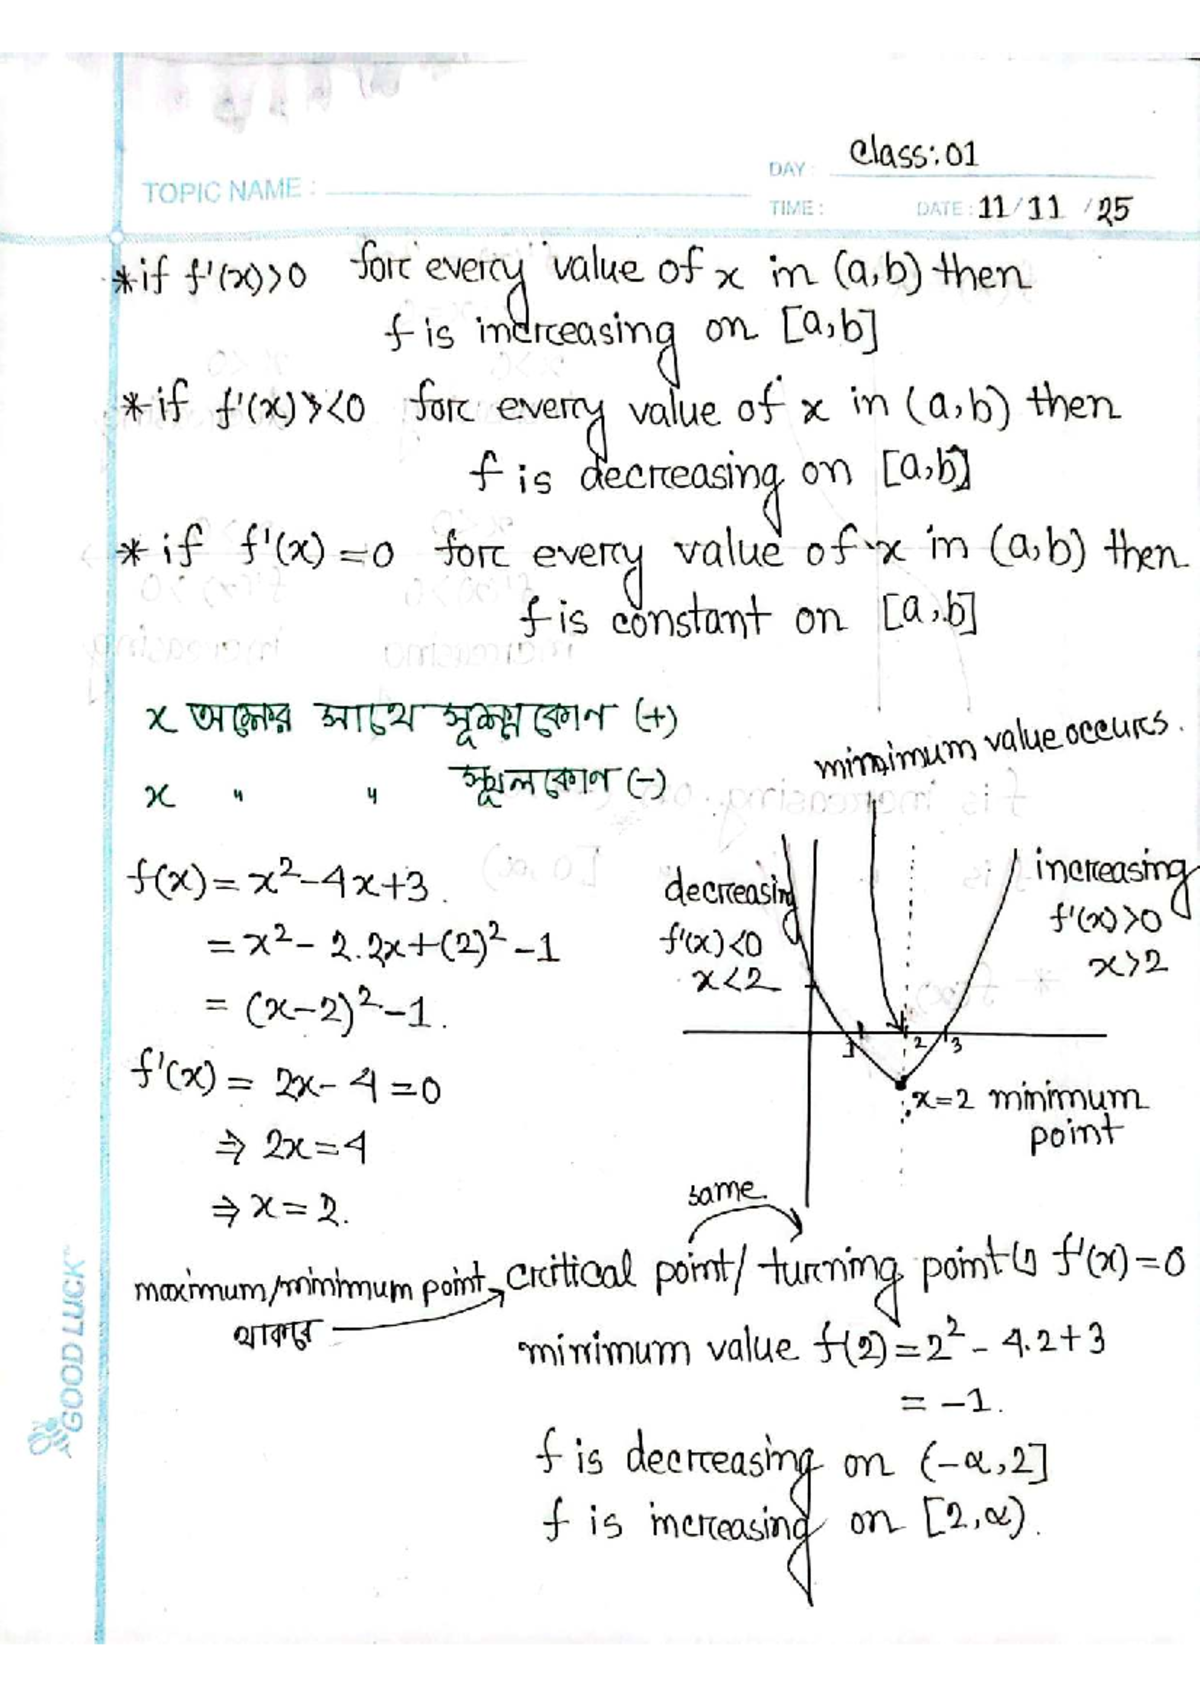 Class: 01
DAY :
TOPIC NAME :
TIME :
DATE : 11/11/25
* if f'(x)>0 for every value of x in (a,b) then
f is increasing on [a,b]
* if f'(x) <0 for every value of x in (a,b) then
f is decreasing on [a,b]
* if f'(x) =0 for every value of x in (a,b) then
f is constant on [a,b]
x অক্ষের সাথে সূক্ষ্মকোণ (+)
x " " স্থূলকোণ (-)
minimum value occurs.
f(x) = x²-4x+3.
= x² - 2.2x+(2)² -1
= (x-2)² -1.
f'(x) = 2x- 4 =0
⇒ 2x=4
⇒ x = 2.
decreasing
f'(x)<0
x<2
increasing
f'(x)>0
x>2
1 2 3
x=2 minimum
point
same.
maximum/minimum point থাকবে → critical point/ turning point এ f'(x)=0
minimum value f(2)=2² - 4.2+3
= -1.
f is decreasing on (-α,2]
f is increasing on [2,α).
GOOD LUCK™